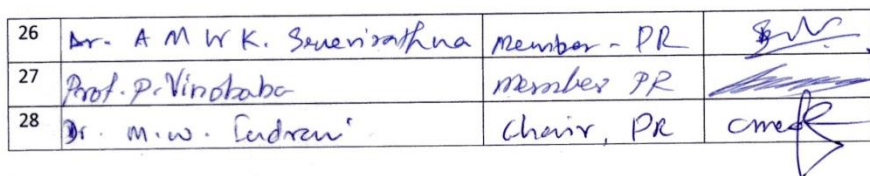 26 Dr. A M W K. Senevirathna Member - PR
27 Prof. P. Vinobaba Member PR
28 Dr. M. W. Indrani Chair, PR